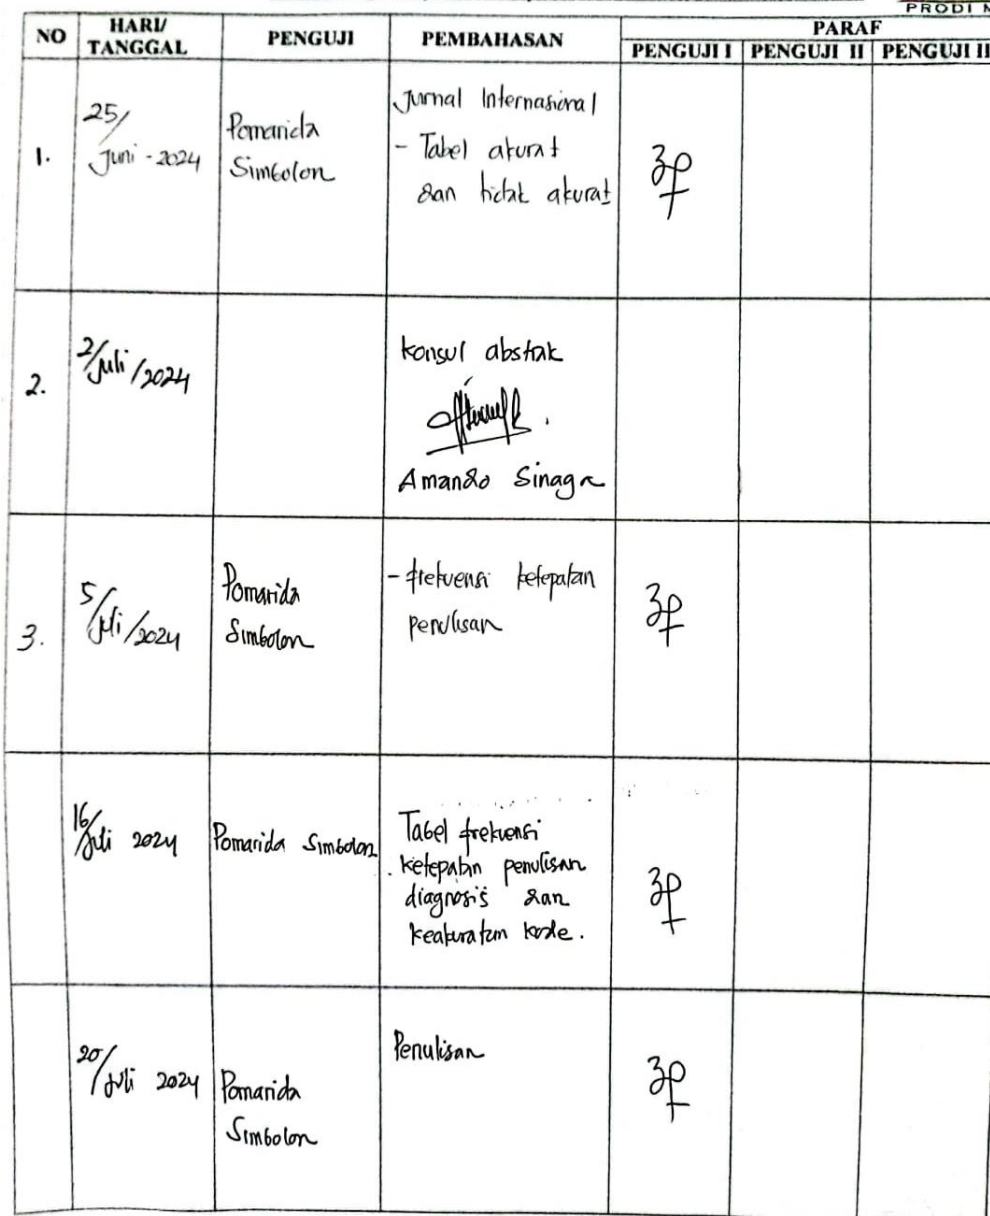 PRODI M
NO
HARI/
TANGGAL
PENGUJI
PEMBAHASAN
PARAF
PENGUJI I
PENGUJI II
PENGUJI II
1.
25/
Juni - 2024
Pomarida
Simbolon
Jurnal Internasional
- Tabel akurat
dan tidak akurat
2.
2/Juli/2024
konsul abstrak
Amando Sinaga
3.
5/Juli/2024
Pomarida
Simbolon
- frekuensi ketepatan
penulisan
16/Juli 2024
Pomarida Simbolon
Tabel frekuensi
ketepatan penulisan
diagnosis dan
keakuratan kode.
20/Juli 2024
Pomarida
Simbolon
Penulisan